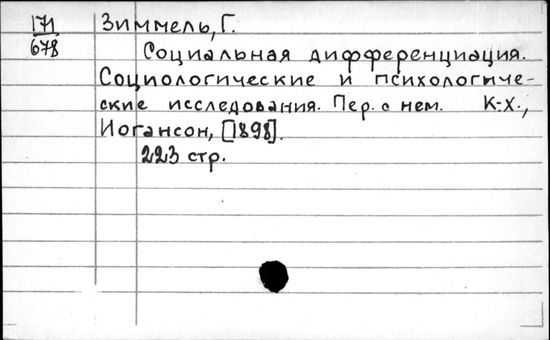 171 Зиммель, Г.
678
Социальная дифференциация.
Социологические и психологиче-
ские исследования. Пер. с нем. К.-Х.,
Иогансон, [1898].
223 стр.